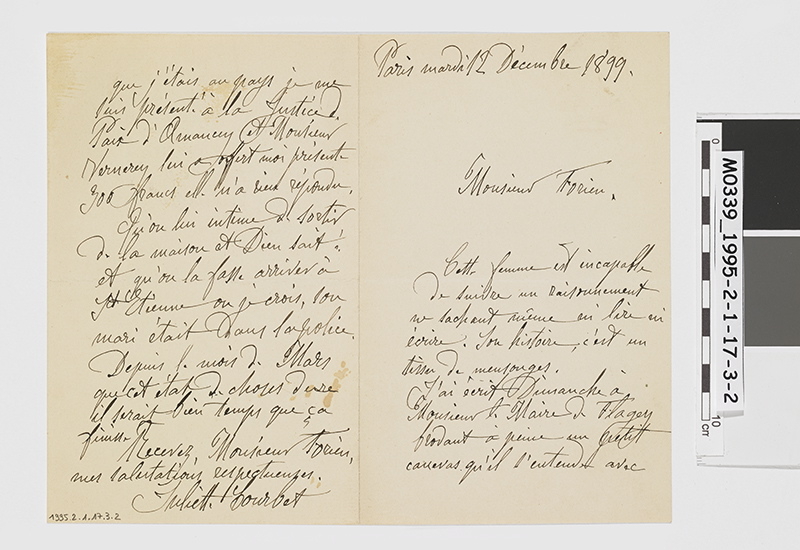 Paris mardi 12 Décembre 1899.
Monsieur Forien.
Cette femme est incapable
de suivre un raisonnement
ne sachant même ni lire ni
écrire. Son histoire, c'est un
tissu de mensonges.
J'ai écrit Dimanche à
Monsieur le Maire de Flagey
brodant à peine un petit
canevas qu'il s'entende avec
que j'étais au pays je me
suis présenté à la Justice de
Paix d'Amancey et Monsieur
Vernerey lui a offert moi présente
300 francs elle n'a rien répondu.
Qu'on lui intime de sortir
de la maison et Dieu sait !
et qu'on la fasse arriver à
St Etienne ou je crois, son
mari était dans la police.
Depuis le mois de Mars
que cet état de choses dure
il serait bien temps que ça
finisse.
Recevez, Monsieur Forien,
mes salutations respectueuses.
Juliette Courbet
1995.2.1.17.3-2
M0339_1995-2-1-17-3-2
0
10
cm